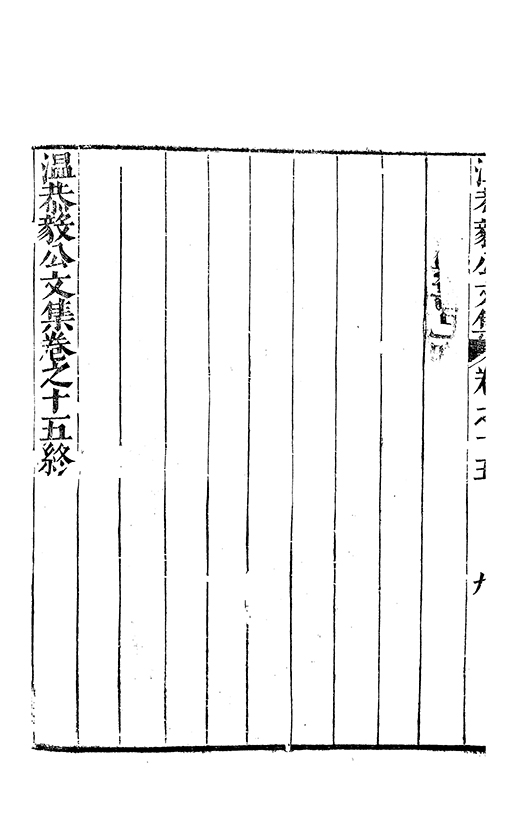 温恭毅公文集卷之十五
九
温恭毅公文集卷之十五終